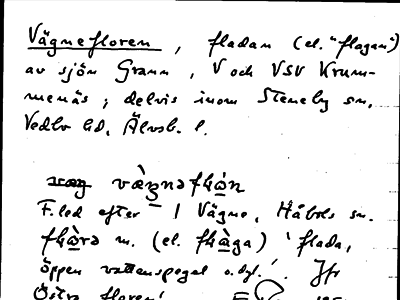 Vägnefloren, fladan (el. "flagan")
av sjön Grann, V och VSV Krum-
menäs; delvis inom Steneby sn,
Vedbo hd, Älvsb. l.
væg̲nəfḷɷ̀n
F.led efter 1 Vägne, Håbols sn.
m. (el. ) 'flada,
öppen vattenspegel o.dyl.'. Jfr
Östra floren!